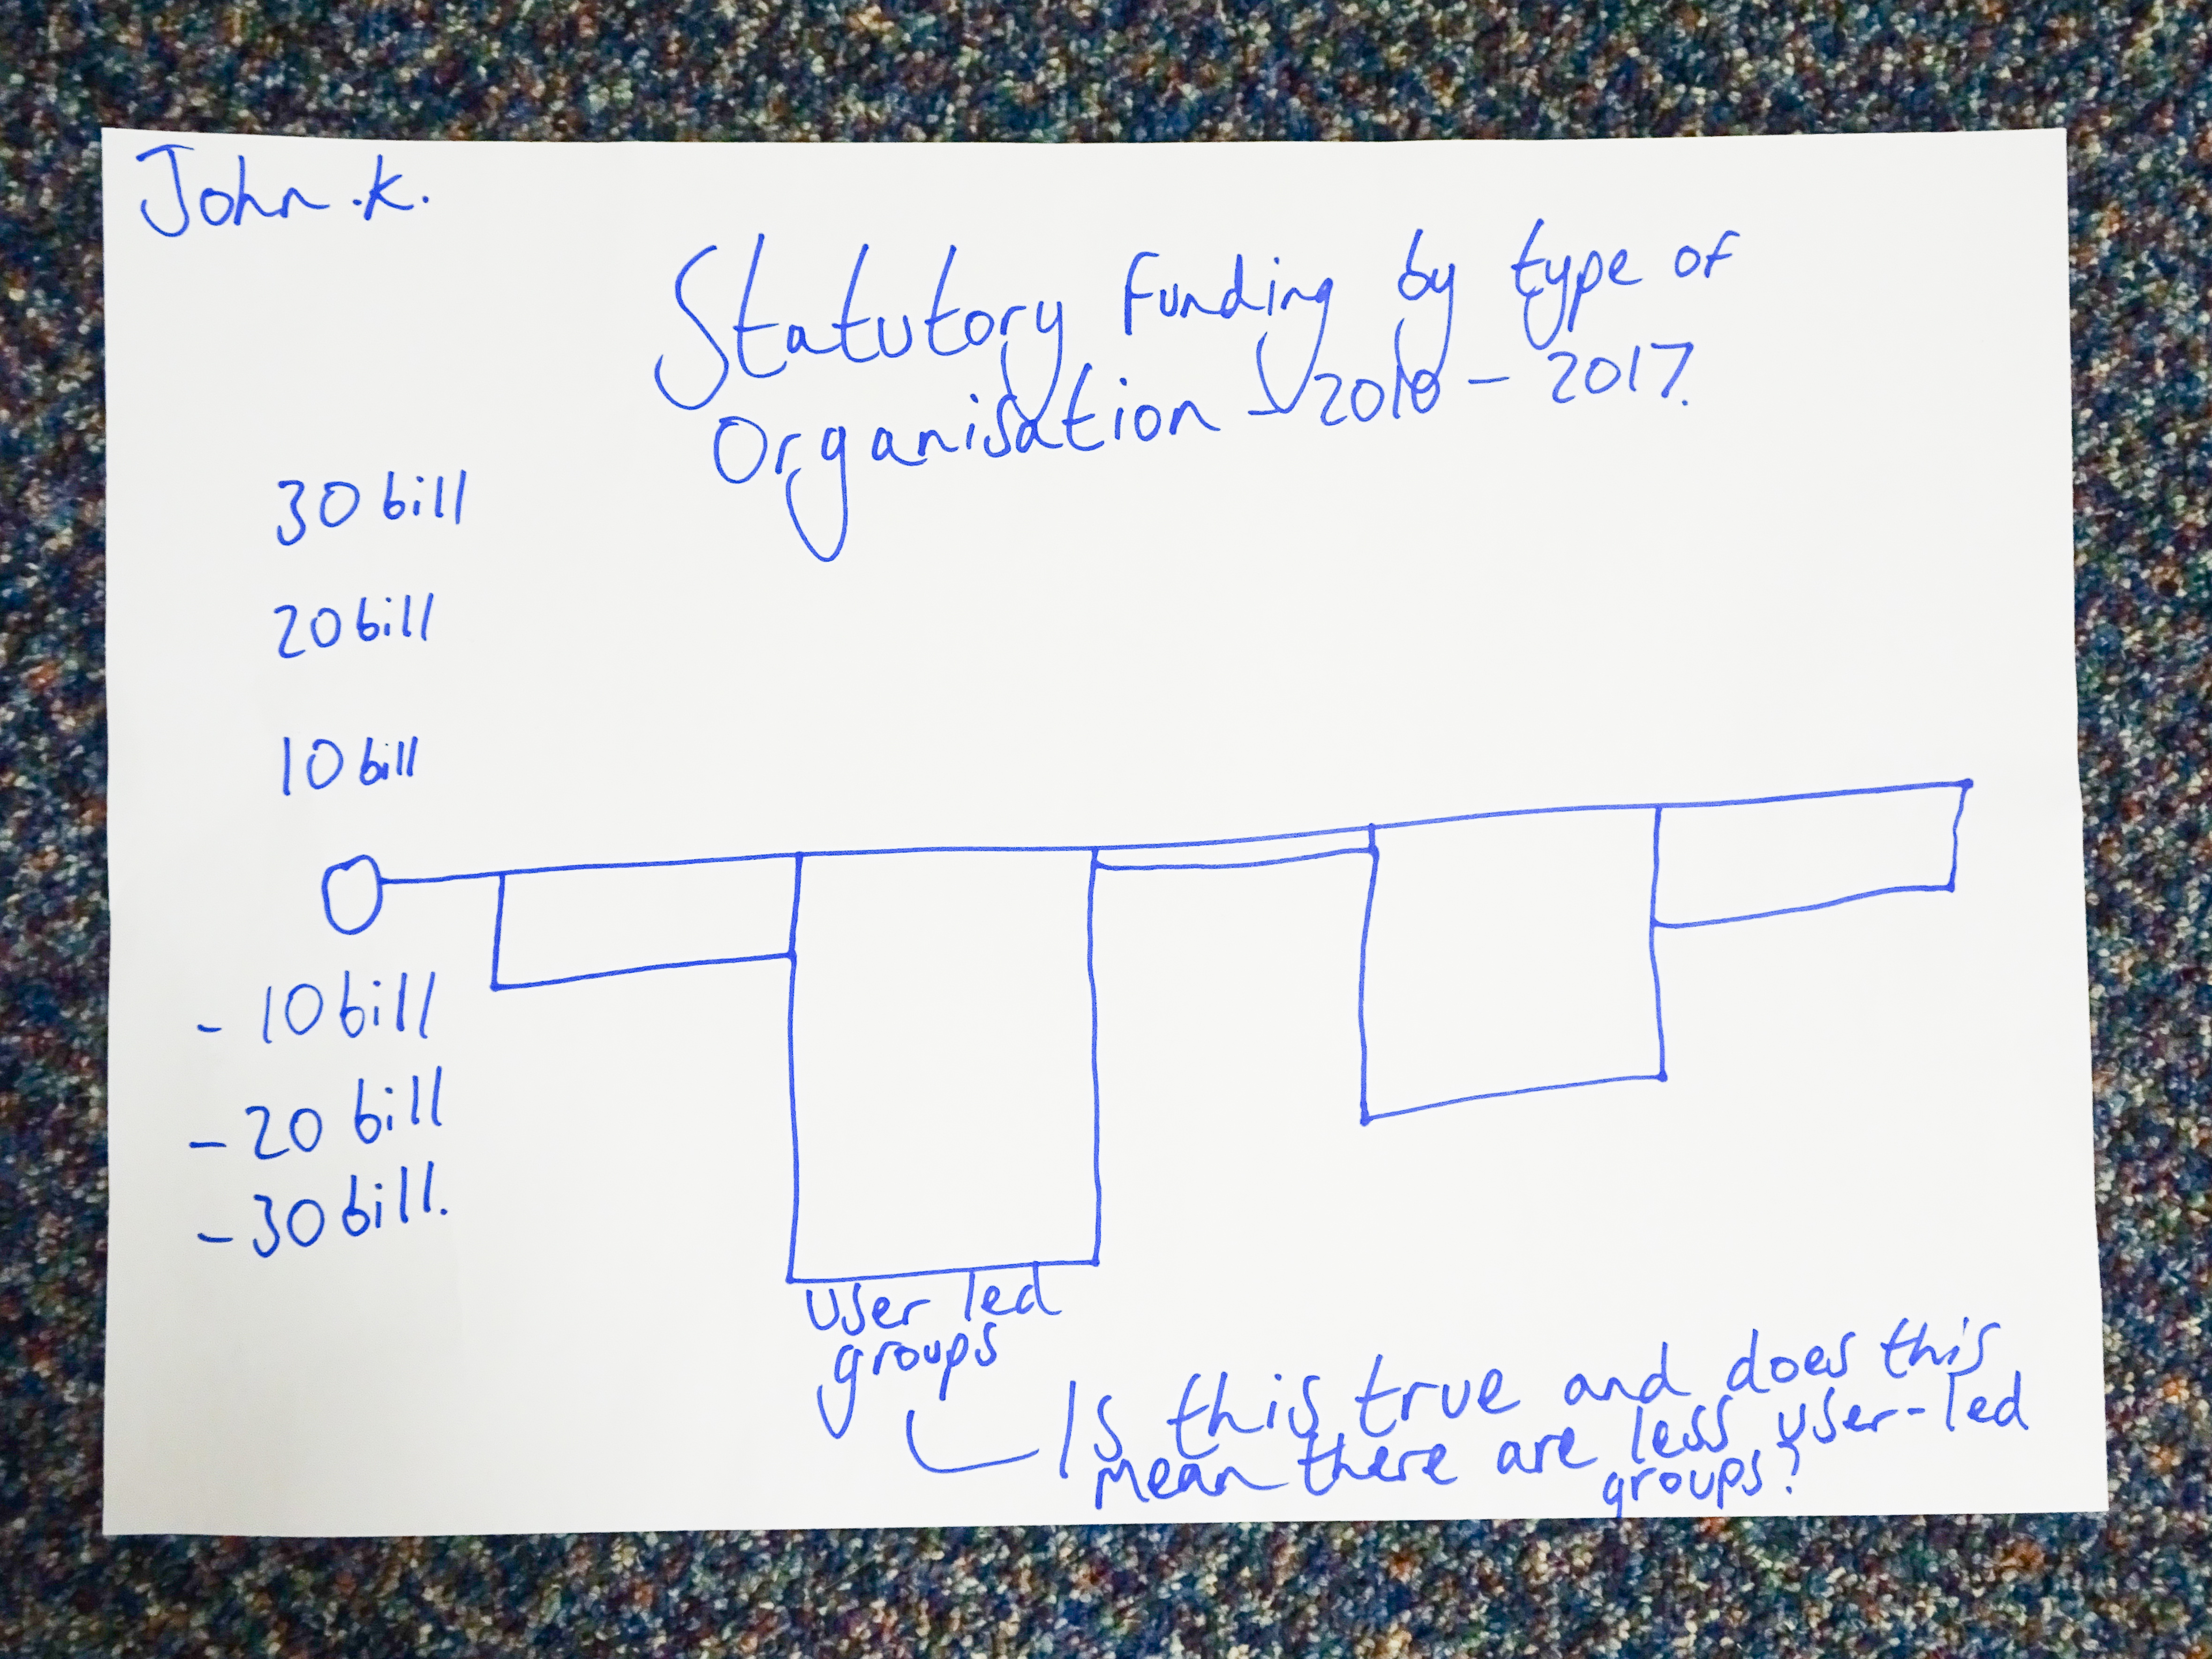 John .K.
Statutory Funding by type of
Organisation - 2010 - 2017.
30 bill
20 bill
10 bill
0
- 10 bill
- 20 bill
- 30 bill.
User led
groups
Is this true and does this
mean there are less user-led
groups?